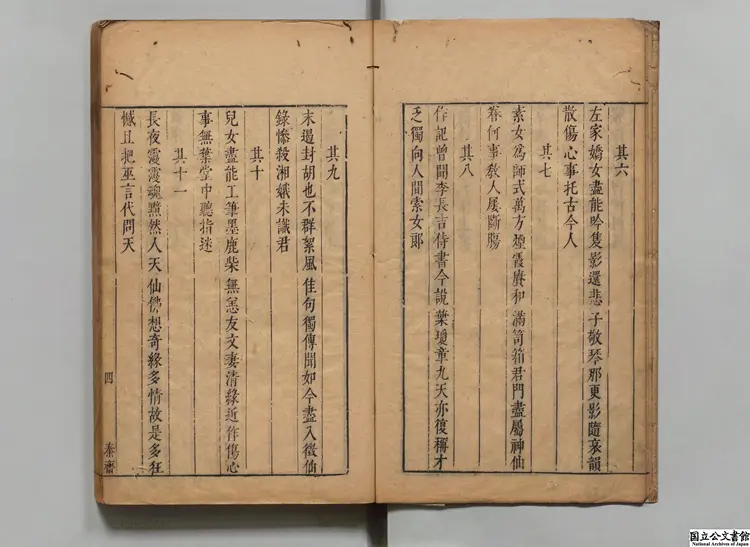 其六
左家嬌女盡能吟隻影還悲子敬琴那更影隨哀韻
散傷心事托古今人
其七
素女為師式萬方煙霞賡和滿笥箱君門盡屬神仙
眷何事教人屢斷腸
其八
作記曾聞李長吉侍書今說葉瓊章九天亦復稱才
乏獨向人間索女郎
其九
未遏封胡也不群絮風佳句獨傳聞如今盡入徵仙
錄慘殺湘娥未識君
其十
兒女盡能工筆墨鹿柴無恙友文妻清緣近作傷心
事無葉堂中聽指迷
其十一
長夜霞霞魂黯然人天仙佛想奇緣多情故是多狂
憾且把巫言代問天
四
泰齋
国立公文書館
National Archives of Japan